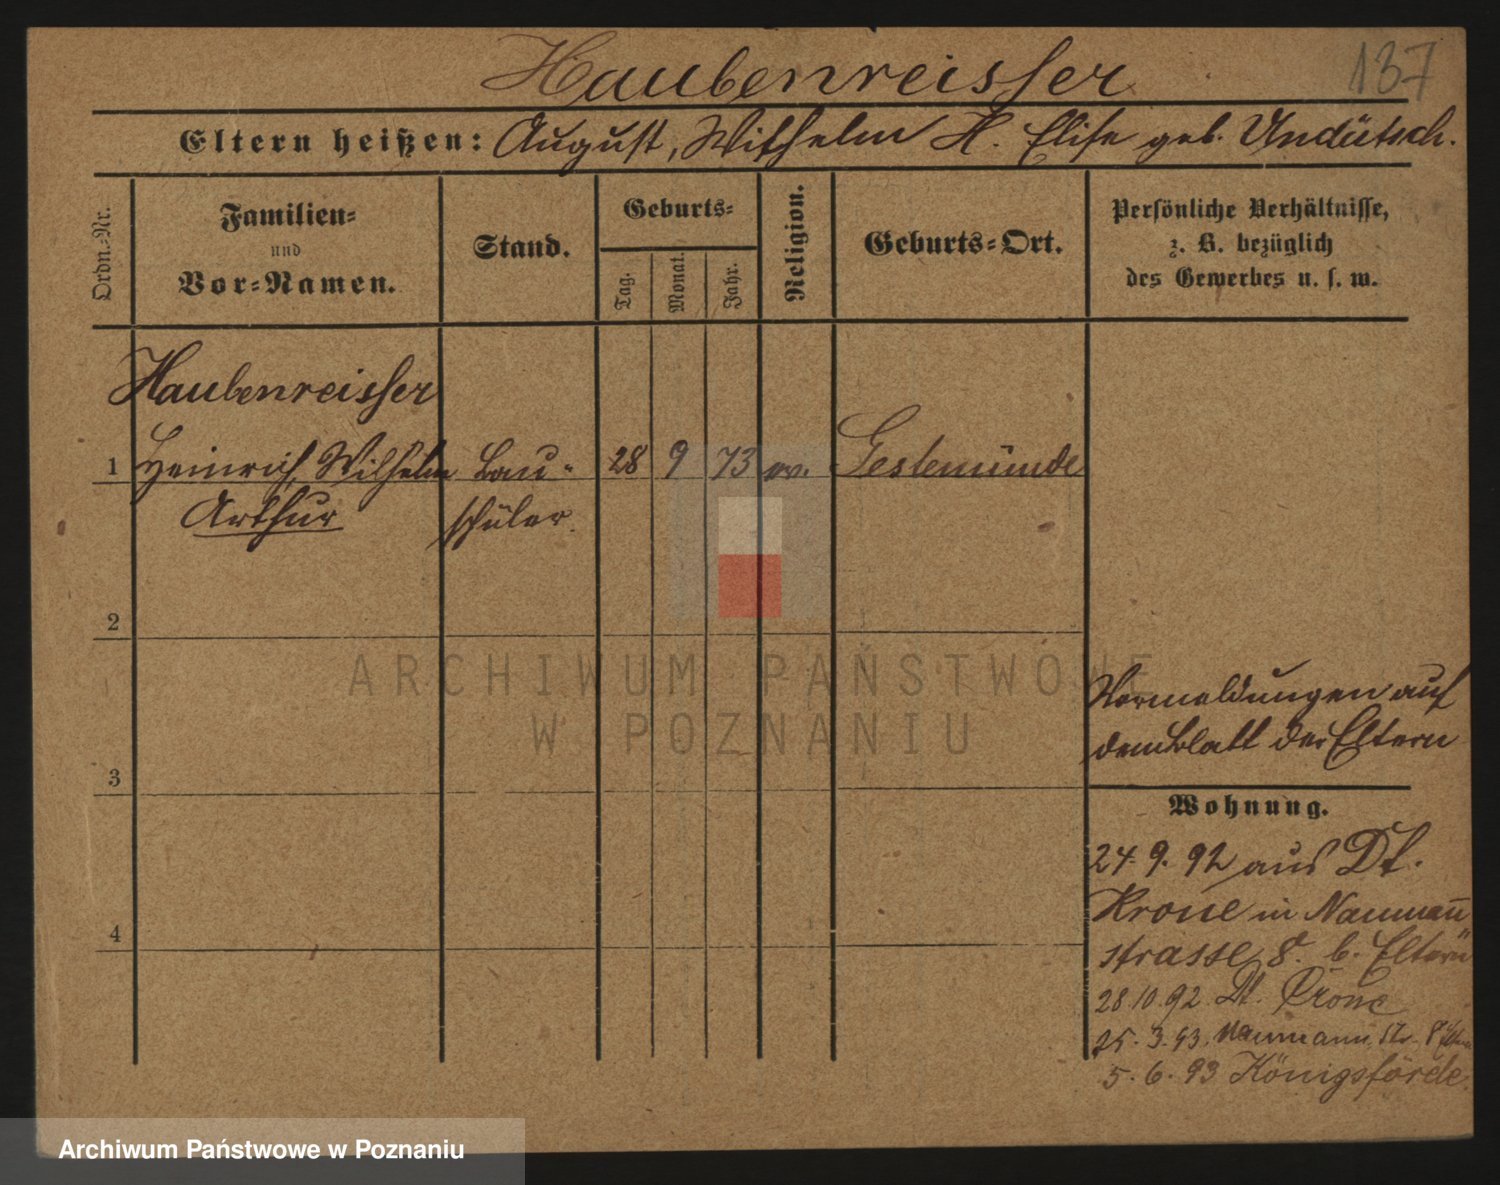 Haubenreisser
137
Eltern heißen: August, Wilhelm H. Elise geb. Undütsch.
Ordn.-Nr.
Familien-
und
Vor-Namen.
Stand.
Geburts-
Tag.
Monat.
Jahr.
Religion.
Geburts-Ort.
Persönliche Verhältnisse,
z. B. bezüglich
des Gewerbes u. s. w.
Haubenreisser
1 Heinrich, Wilhelm Bau- 28 9 73 ev. Gestemünde
Arthur schüler.
2
ARCHIWUM PAŃSTWOWE
W POZNANIU
Vormeldungen auf
dem Blatt der Eltern
3
Wohnung.
24. 9. 92 aus Dt.
Krone in Naumann
4
strasse 8. b. Eltern
28.10.92. Dt. Crone
25. 3. 93. Naumann Str. 8
5. 6. 93 Königsförde
Archiwum Państwowe w Poznaniu